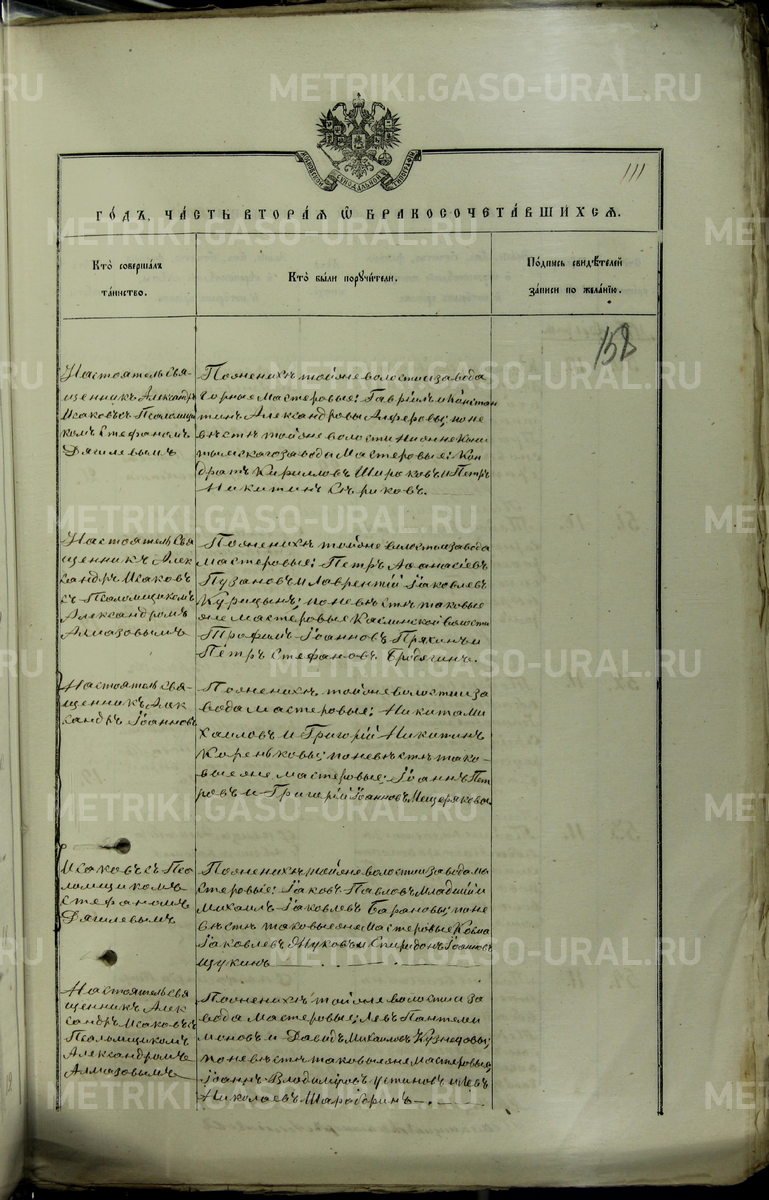 METRIKI.GASO-URAL.RU
МОСКОВСКОЙ СѴНОДАЛЬНОЙ ТИПОГРАФІИ
111
ГО́ДЪ, ЧА́СТЬ ВТОРА́Я Ѡ БРАКОСОЧЕТА́ВШИХСЯ.
Кто̀ соверша́лъ
та́инство.
Кто̀ бы́ли поручи́тели.
По́дпись свидѣ́телей
за́писи по жела́нїю.
158
Настоятель Свя-
щенникъ Александръ
Исаковъ съ Псаломщи
комъ Стефаномъ
Дягилевымъ
По женихѣ: той же волости и завода
горные Мастеровые: Гаврiилъ и Констан
тинъ Александровы Алферовы; по не
вѣстѣ: той же волости Нижне-
завода Мастеровые: Кон
дратъ Кирилловъ Широковъ и Петръ
Никитинъ
Настоятель Свя
щенникъ Алек
сандръ Исаковъ
съ Псаломщикомъ
Александромъ
Алмазовымъ
По женихѣ: той же волости и завода
мастеровые: Петръ Аѳанасiевъ
Пузановъ и Лаврентiй Iаковлевъ
Курицынъ; по невѣстѣ: таковые
же мастеровые Каслинской волости
Трофимъ Iоанновъ Пряхинъ и
Петръ Стефановъ Бродягинъ.
Настоятель Свя-
щенникъ Алек
сандръ Iоанновъ
По женихѣ: той же волости и за
вода мастеровые: Никита Ми
хаиловъ и Григорiй Никитинъ
Кореньковы; по невѣстѣ: тако-
вые же мастеровые: Iоаннъ Пет
ровъ и Григорiй Iоанновъ Мещеряковы
Исаковъ съ Пса
ломщикомъ
Стефаномъ
Дягилевымъ
По женихѣ: той же волости и завода ма
стеровые: Iаковъ Павловъ Младшiй и
Михаилъ Iаковлевъ Барановы; по не
вѣстѣ: таковые же Мастеровые Козма
Iаковлевъ Жуковъ и Спиридонъ Iоанновъ
Щукинъ
Настоятель Свя
щенникъ Алек
сандръ Исаковъ съ
Псаломщикомъ
Александромъ
Алмазовымъ
По женихѣ: той же волости и за
вода мастеровые: Левъ Пантелеи
моновъ и Давидъ Михаиловъ Кузнецовы;
по невѣстѣ: таковые же Мастеровые
Iоаннъ Владимiровъ Устиновъ и Левъ
Николаевъ